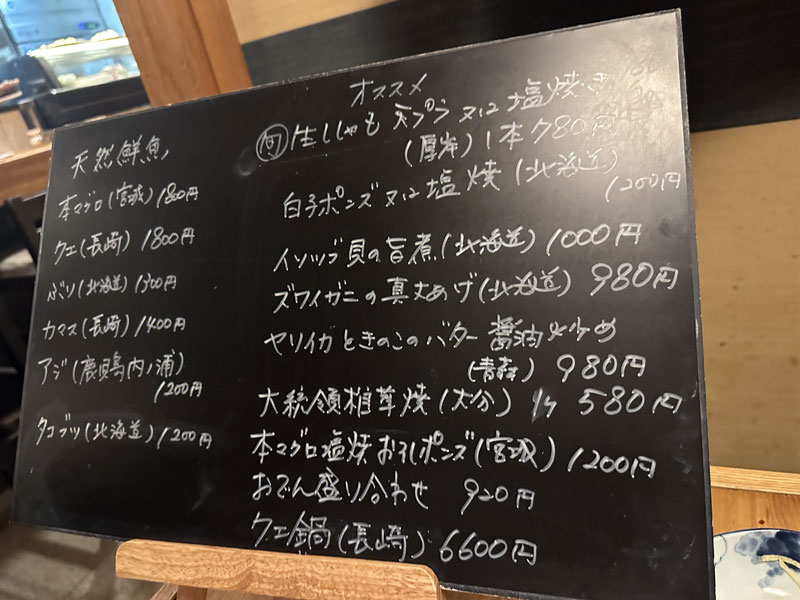 天然鮮魚
本マグロ(宮城)1800円
クエ(長崎)1800円
ぶり(北海道)1300円
カマス(長崎)1400円
アジ(鹿児島内ノ浦)
1200円
タコブツ(北海道)1200円
オススメ
旬 生ししゃも 天プラ 又は 塩焼き
(厚岸)1本780円
白子ポンズ又は塩焼(北海道)
1200円
イソツブ貝の旨煮(北海道)1000円
ズワイガニの真丈あげ(北海道)980円
ヤリイカときのこのバター醤油炒め
(青森)980円
大統領椎茸焼(大分)1ケ580円
本マグロ塩焼おろしポンズ(宮城)1200円
おでん盛り合わせ 920円
クエ鍋(長崎)6600円